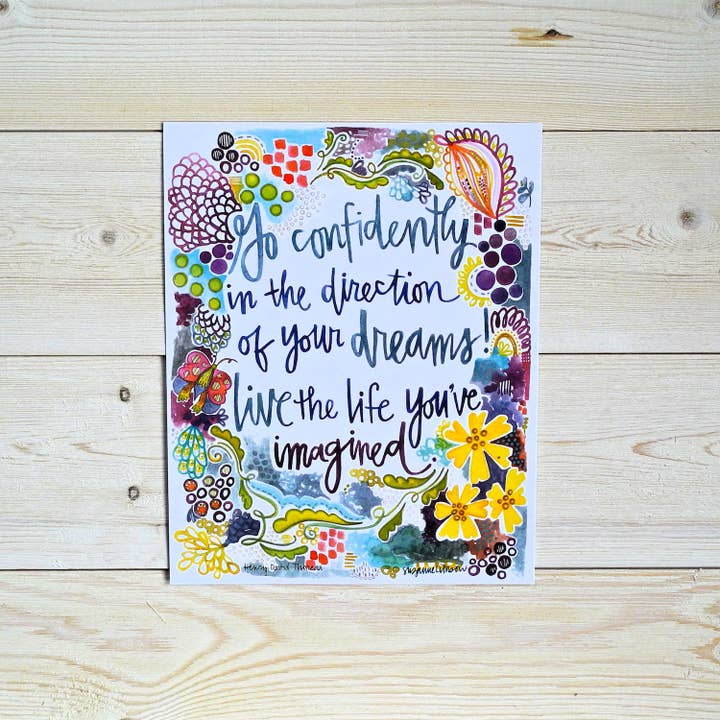 Go confidently
in the direction
of your dreams!
live the life you've
imagined.
Henry David Thoreau